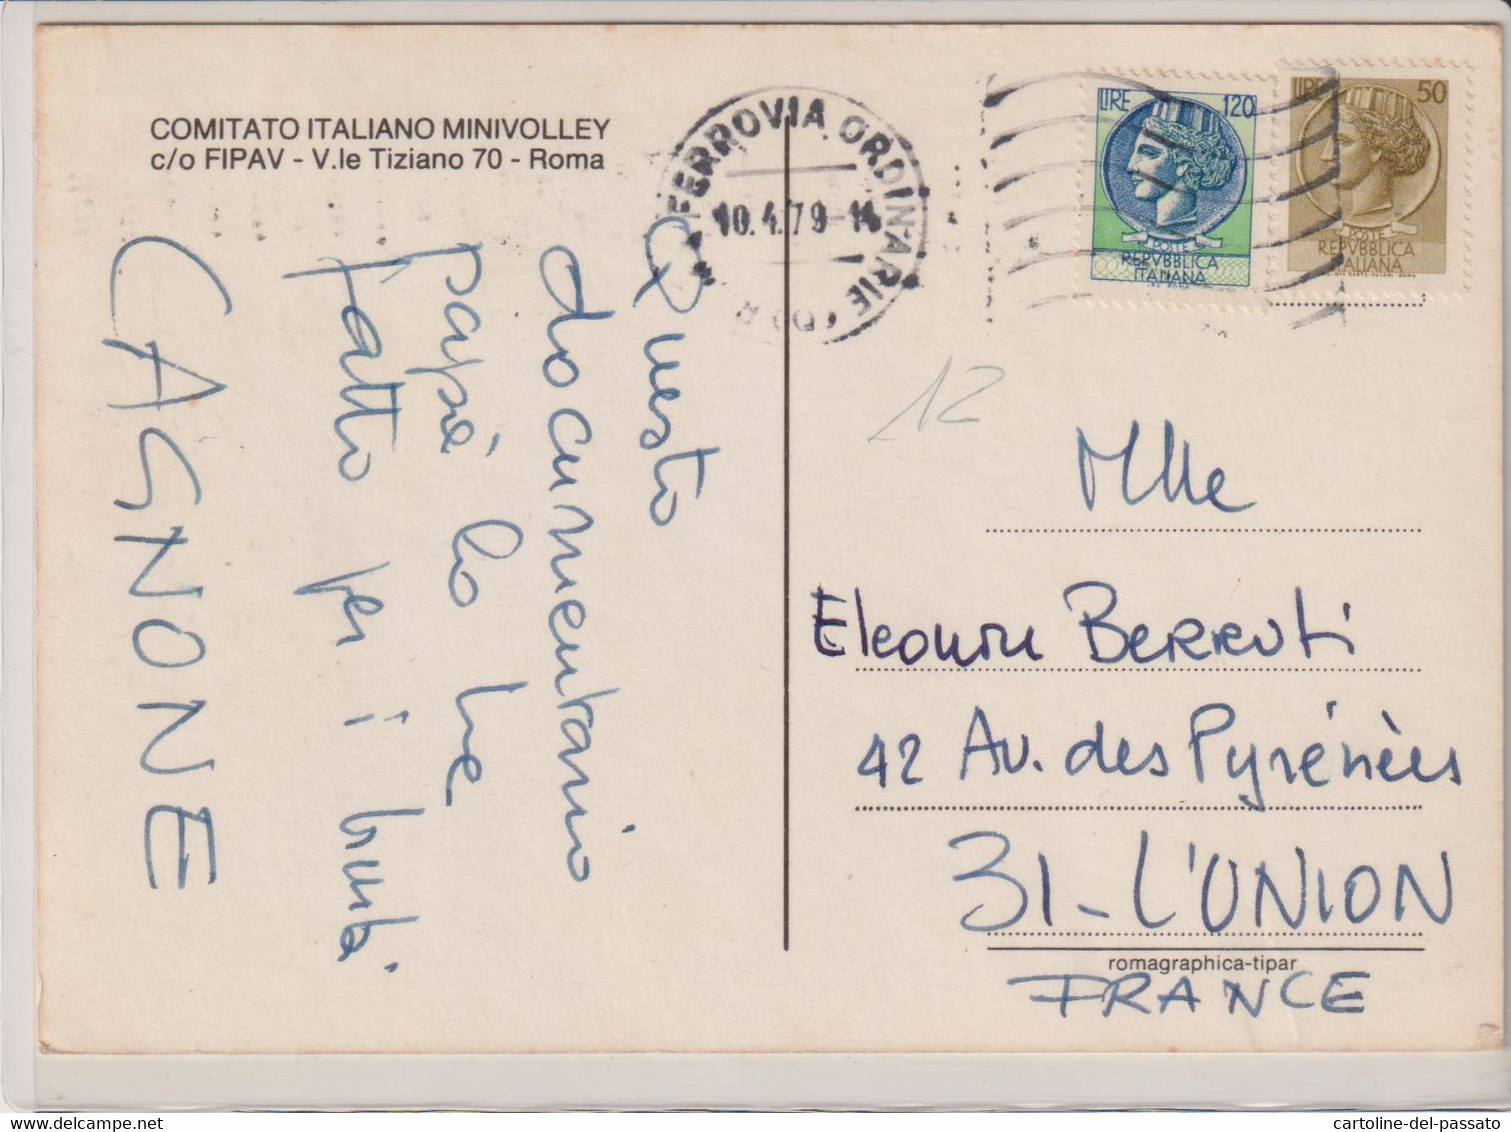 COMITATO ITALIANO MINIVOLLEY
c/o FIPAV - V.le Tiziano 70 - Roma
FERROVIA ORDINARIE
10.4.79
LIRE 120
POSTE
REPVBBLICA
ITALIANA
LIRE 50
POSTE
REPVBBLICA
ITALIANA
12
Questo
documentario
papà lo ha
fatto per i bimbi
CAGNONE
Mlle
Eleonire BERRUTi
42 Av. des Pyrénèes
31-L'UNION
romagraphica-tipar
FRANCE
cartoline-del-passato